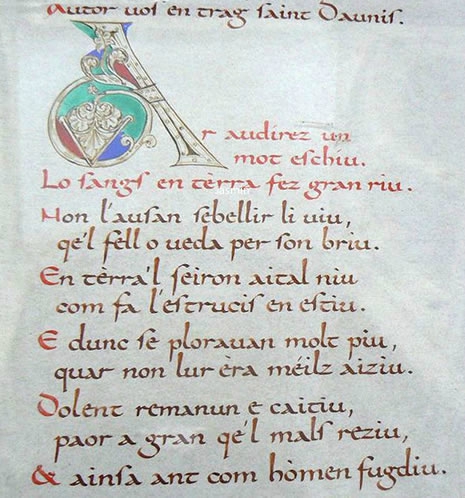 Autor vos en trag saint Daunis.
Ar audirez un
mot eschiu.
Lo sangs en tèrra fez gran riu.
Non l'ausan sebellir li viu,
qe'l fell o veda per son briu.
En tèrra'l seiron aital niu
com fa l'estrucis en estiu.
E dunc se ploravan molt piu,
quar non lur èra méilz aiziu.
Dolent remanun e caitiu,
paor a gran qe'l mals reziu,
& ainsa ant com hòmen fugdiu.